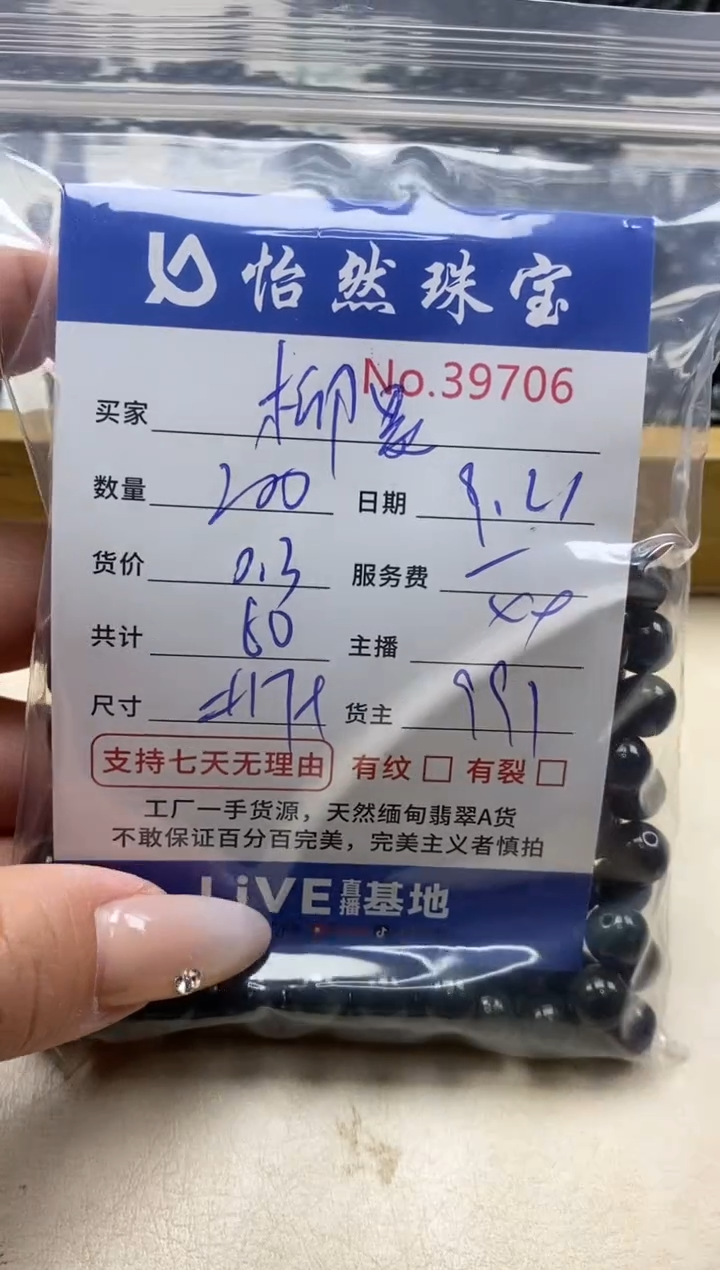 怡然珠宝
No.39706
买家 柳
数量 200 日期 9.21
货价 0.3 服务费
共计 60 主播
尺寸 货主 991
支持七天无理由 有纹 □ 有裂 □
工厂一手货源，天然缅甸翡翠A货
不敢保证百分百完美，完美主义者慎拍
LiVE直播基地